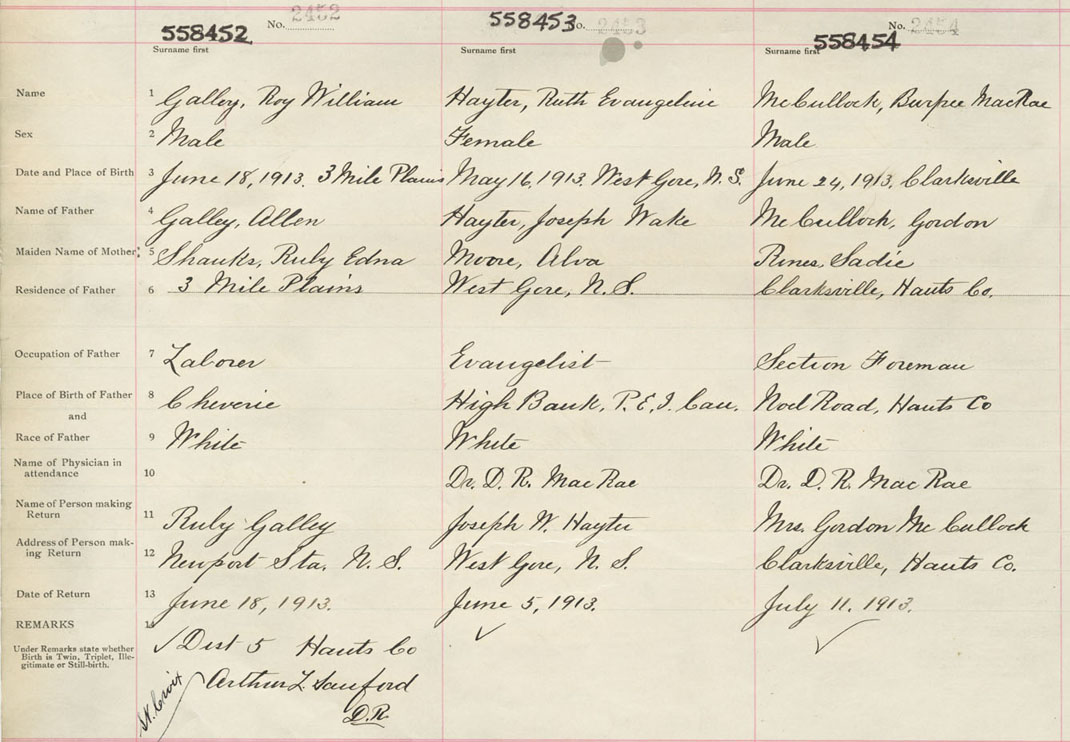 No. 2452 No. 2453 No. 2454
558452 558453 558454
Surname first Surname first Surname first
Name 1 Galley, Roy William Hayter, Ruth Evangeline McCullock, Burpee MacRae
Sex 2 Male Female Male
Date and Place of Birth 3 June 18, 1913. 3 Mile Plains May 16, 1913. West Gore, N.S. June 24, 1913, Clarksville
Name of Father 4 Galley, Allen Hayter, Joseph Wake McCullock, Gordon
Maiden Name of Mother 5 Shanks, Ruby Edna Moore, Alva Rines, Sadie
Residence of Father 6 3 Mile Plains West Gore, N.S. Clarksville, Hants Co.
Occupation of Father 7 Laborer Evangelist Section Foreman
Place of Birth of Father 8 Cheverie High Bank, P.E.I. Can. Noel Road, Hants Co
and
Race of Father 9 White White White
Name of Physician in
attendance 10 Dr. D. R. MacRae Dr. D. R. MacRae
Name of Person making
Return 11 Ruby Galley Joseph W. Hayter Mrs. Gordon McCullock
Address of Person mak-
ing Return 12 Newport Sta. N.S. West Gore, N.S. Clarksville, Hants Co.
Date of Return 13 June 18, 1913. June 5, 1913. July 11, 1913.
REMARKS 14
Under Remarks state whether
Birth is Twin, Triplet, Ille-
gitimate or Still-birth.
Dist 5 Hants Co
Arthur L. Sanford
D.R.
St. Croix